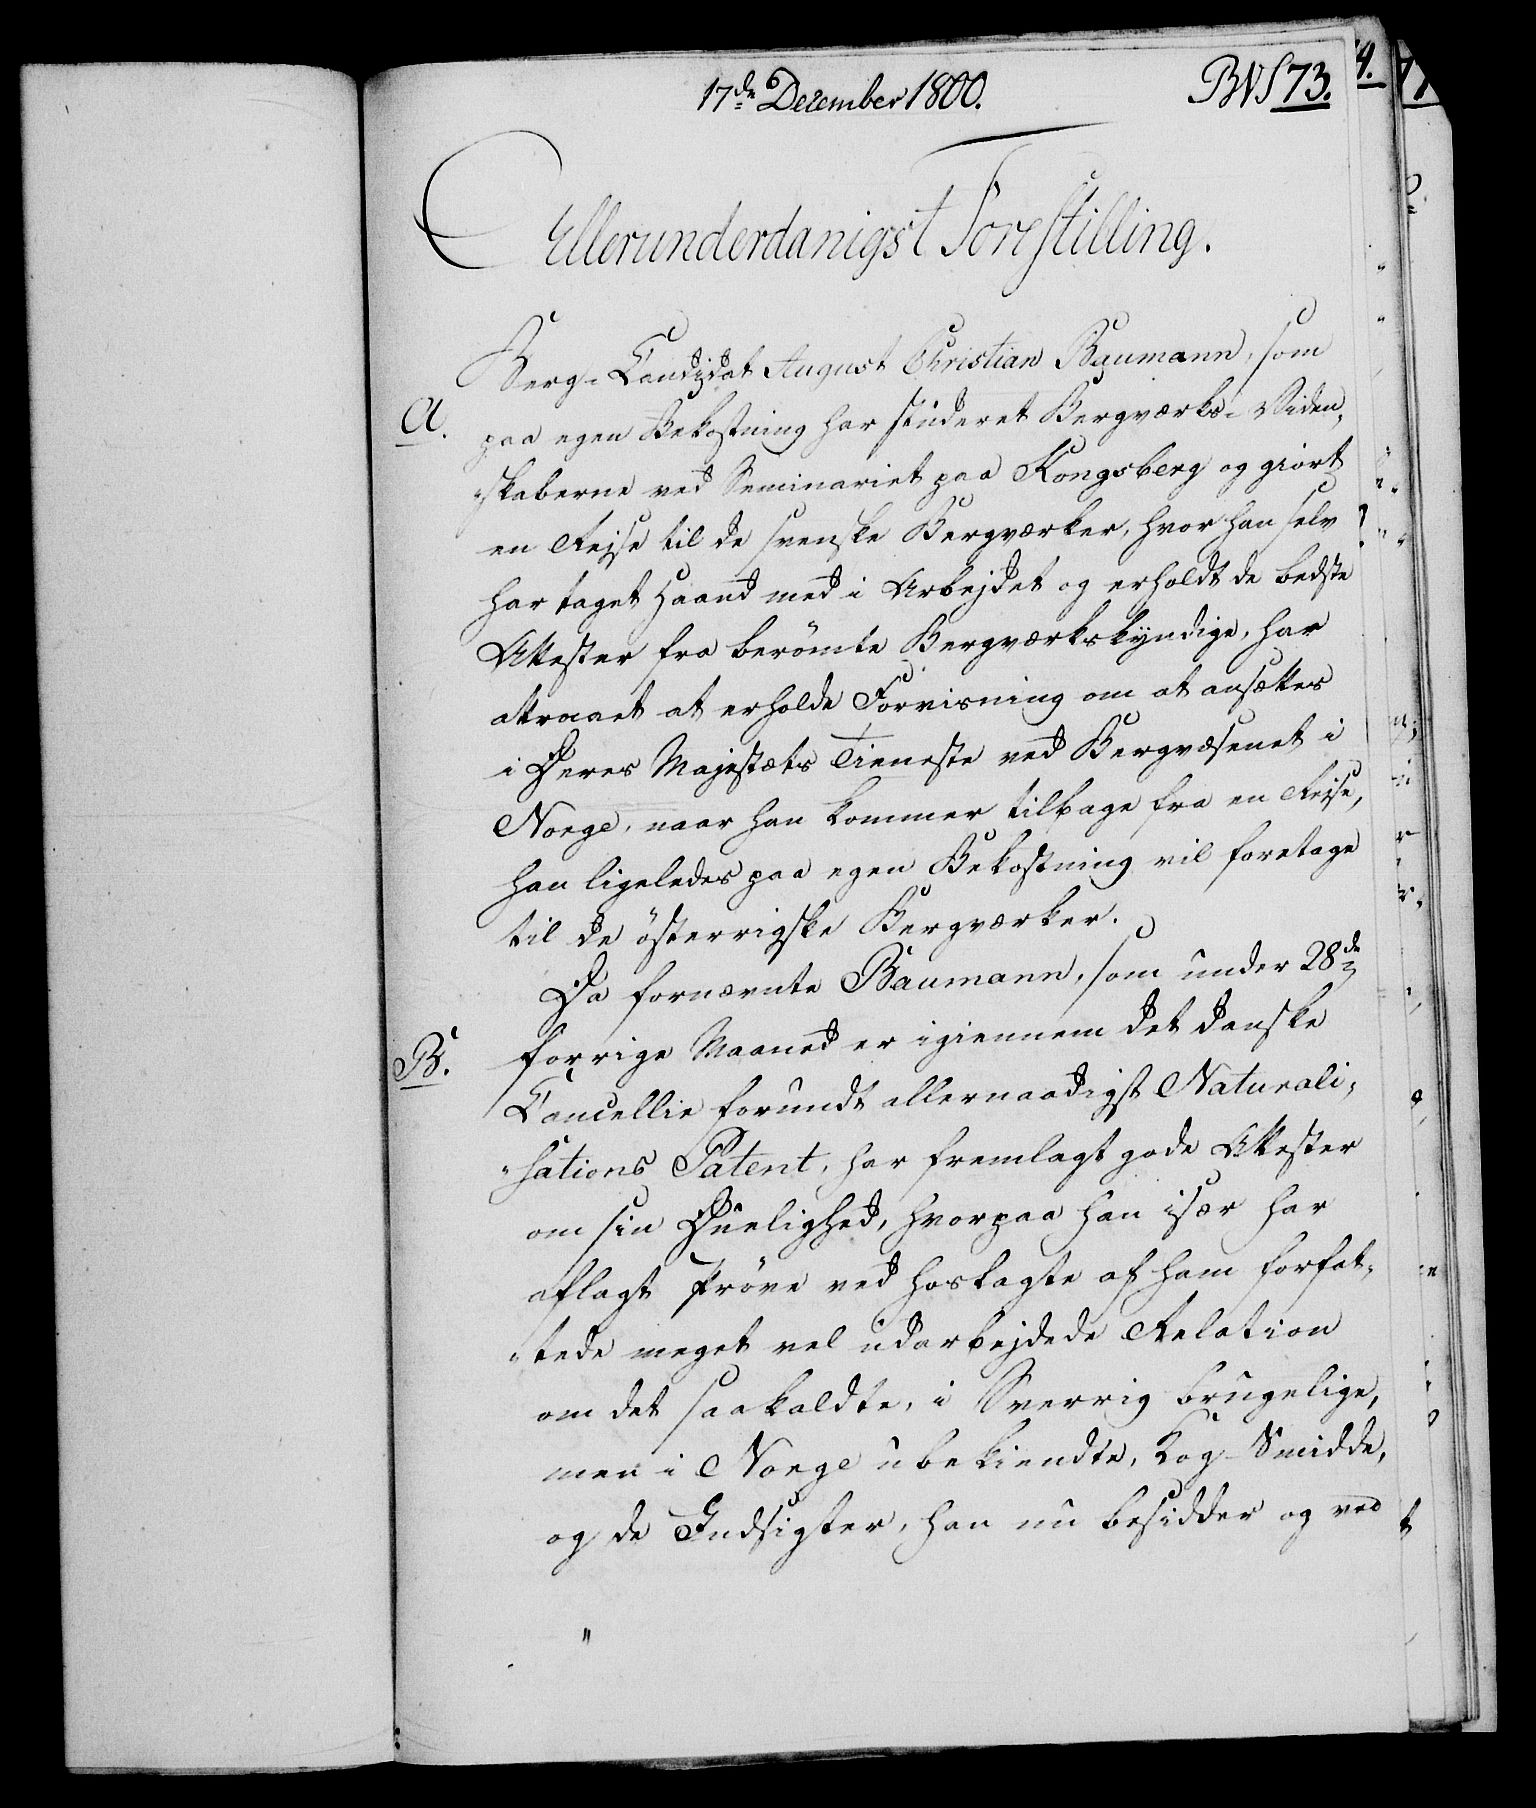 17de December 1800.
BVS 73.
Allerunderdanigst Forestilling.
Berg-Candidat August Christian Baumann, som
A.
paa egen Bekostning har studeret Bergværks-Viden-
-skaberne ved Seminariet paa Kongsberg og giort
en Rejse til de svenske Bergværker, hvor han selv
har taget Haand med i Arbejdet og erholdt de bedste
Attester fra berömte Bergværkskyndige, har
attraaet at erholde Forvisning om at ansættes
i Deres Majestæts Tieneste ved Bergvæsenet i
Norge, naar han kommer tilbage fra en Rejse,
han ligeledes paa egen Bekostning vil foretage
til de österrigske Bergværker.
Da fornævnte Baumann, som under 28de
B.
forrige Maaned er igiennem det danske
Cancellie forundt allernaadigst Naturali-
-sations Patent, har fremlagt gode Attester
om sin Duelighed, hvorpaa han især har
aflagt Pröve ved hoslagte af ham forfat-
-tede meget vel udarbejdede Relation
om det saakaldte, i Sverrig brugelige,
men i Norge ubekiendte, Kog-Smidde,
og de Indsigter, han nu besidder og ved